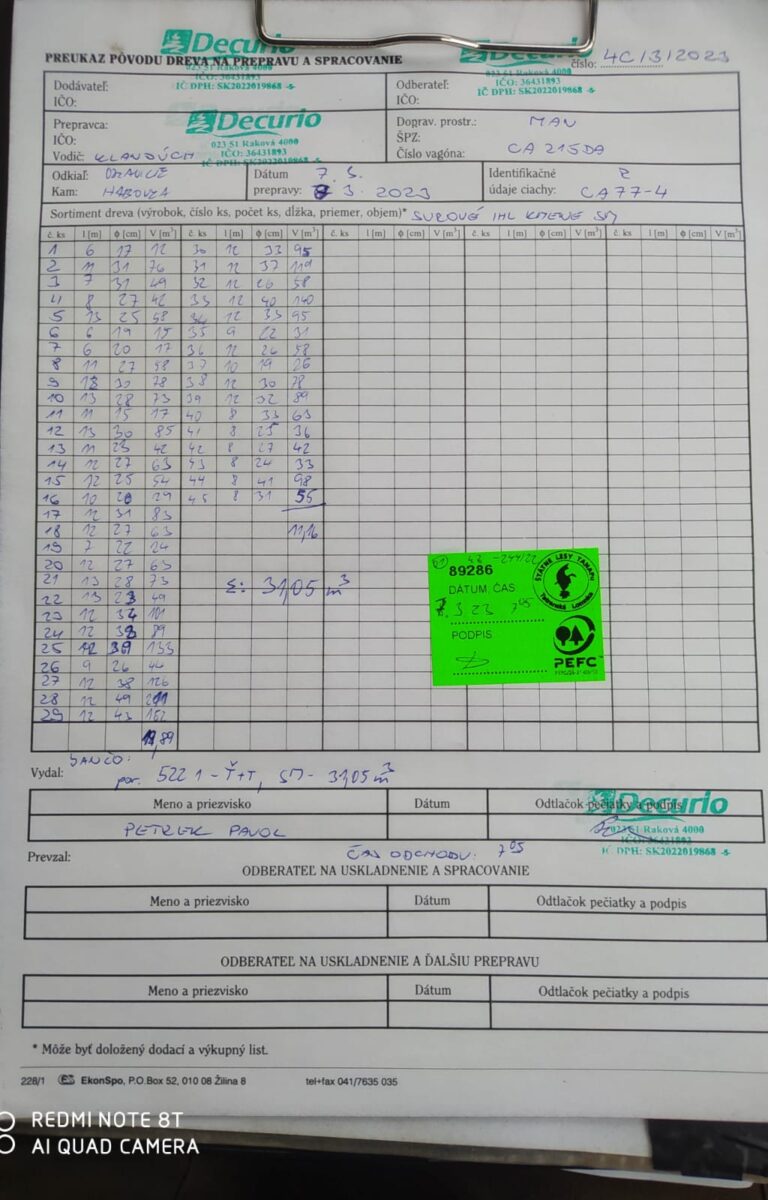 Decurio
PREUKAZ PÔVODU DREVA NA PREPRAVU A SPRACOVANIE
číslo: 4C/3/2023
023 51 Raková 4000
IČO: 36431893
IČ DPH: SK2022019868 -5-
023 51 Raková 4000
IČO: 36431893
IČ DPH: SK2022019868 -5-
Dodávateľ:
IČO:
Odberateľ:
IČO:
Prepravca:
IČO:
Vodič:
Decurio
023 51 Raková 4000
IČO: 36431893
IČ DPH: SK2022019868 -5-
Doprav. prostr.: MAN
ŠPZ:
Číslo vagóna: CA 215DA
Odkiaľ: ORAVICE
Kam: HABOVKA
Dátum 7. 3.
prepravy: 3. 2023
Identifikačné
údaje ciachy: CA77-4
Sortiment dreva (výrobok, číslo ks, počet ks, dĺžka, priemer, objem)* SUROVÉ IHL KMENE SM
č. ks l [m] ϕ [cm] V [m³] č. ks l [m] ϕ [cm] V [m³] č. ks l [m] ϕ [cm] V [m³] č. ks l [m] ϕ [cm] V [m³]
1 6 17 12 30 12 33 95
2 11 31 76 31 12 37 119
3 7 31 49 32 12 26 58
4 8 27 42 33 12 40 140
5 13 25 58 34 12 33 95
6 6 19 15 35 9 22 31
7 6 20 17 36 12 26 58
8 11 27 58 37 10 19 26
9 13 30 78 38 12 30 78
10 13 28 73 39 12 32 89
11 11 15 17 40 8 33 63
12 13 30 85 41 8 25 36
13 11 23 42 42 8 27 42
14 12 27 63 43 8 24 33
15 12 25 54 44 8 41 98
16 10 20 29 45 8 31 55
17 12 31 83
18 12 27 63 11,16
19 7 22 24
20 12 27 63
21 13 28 73
22 13 23 49
23 12 34 101
24 12 32 89
25 12 39 133
26 9 26 44
27 12 38 126
28 12 49 211
29 12 43 162
19,89
Σ: 31,05 m³
89286
DÁTUM, ČAS
7. 3 23 7⁰⁵
PODPIS
ŠTÁTNE LESY TANAPu
Tatranská Lomnica
PEFC
Vydal:
por. 522 1 - Ť+T, SM - 31,05 m³
Meno a priezvisko Dátum Odtlačok pečiatky a podpis
Decurio
PETREK PAVOL
023 51 Raková 4000
IČO: 36431893
IČ DPH: SK2022019868 -5-
Prevzal:
ČAS ODCHODU: 7⁰⁵
ODBERATEĽ NA USKLADNENIE A SPRACOVANIE
Meno a priezvisko Dátum Odtlačok pečiatky a podpis
ODBERATEĽ NA USKLADNENIE A ĎALŠIU PREPRAVU
Meno a priezvisko Dátum Odtlačok pečiatky a podpis
* Môže byť doložený dodací a výkupný list.
228/1 EkonSpo, P.O.Box 52, 010 08 Žilina 8 tel+fax 041/7635 035
REDMI NOTE 8T
AI QUAD CAMERA